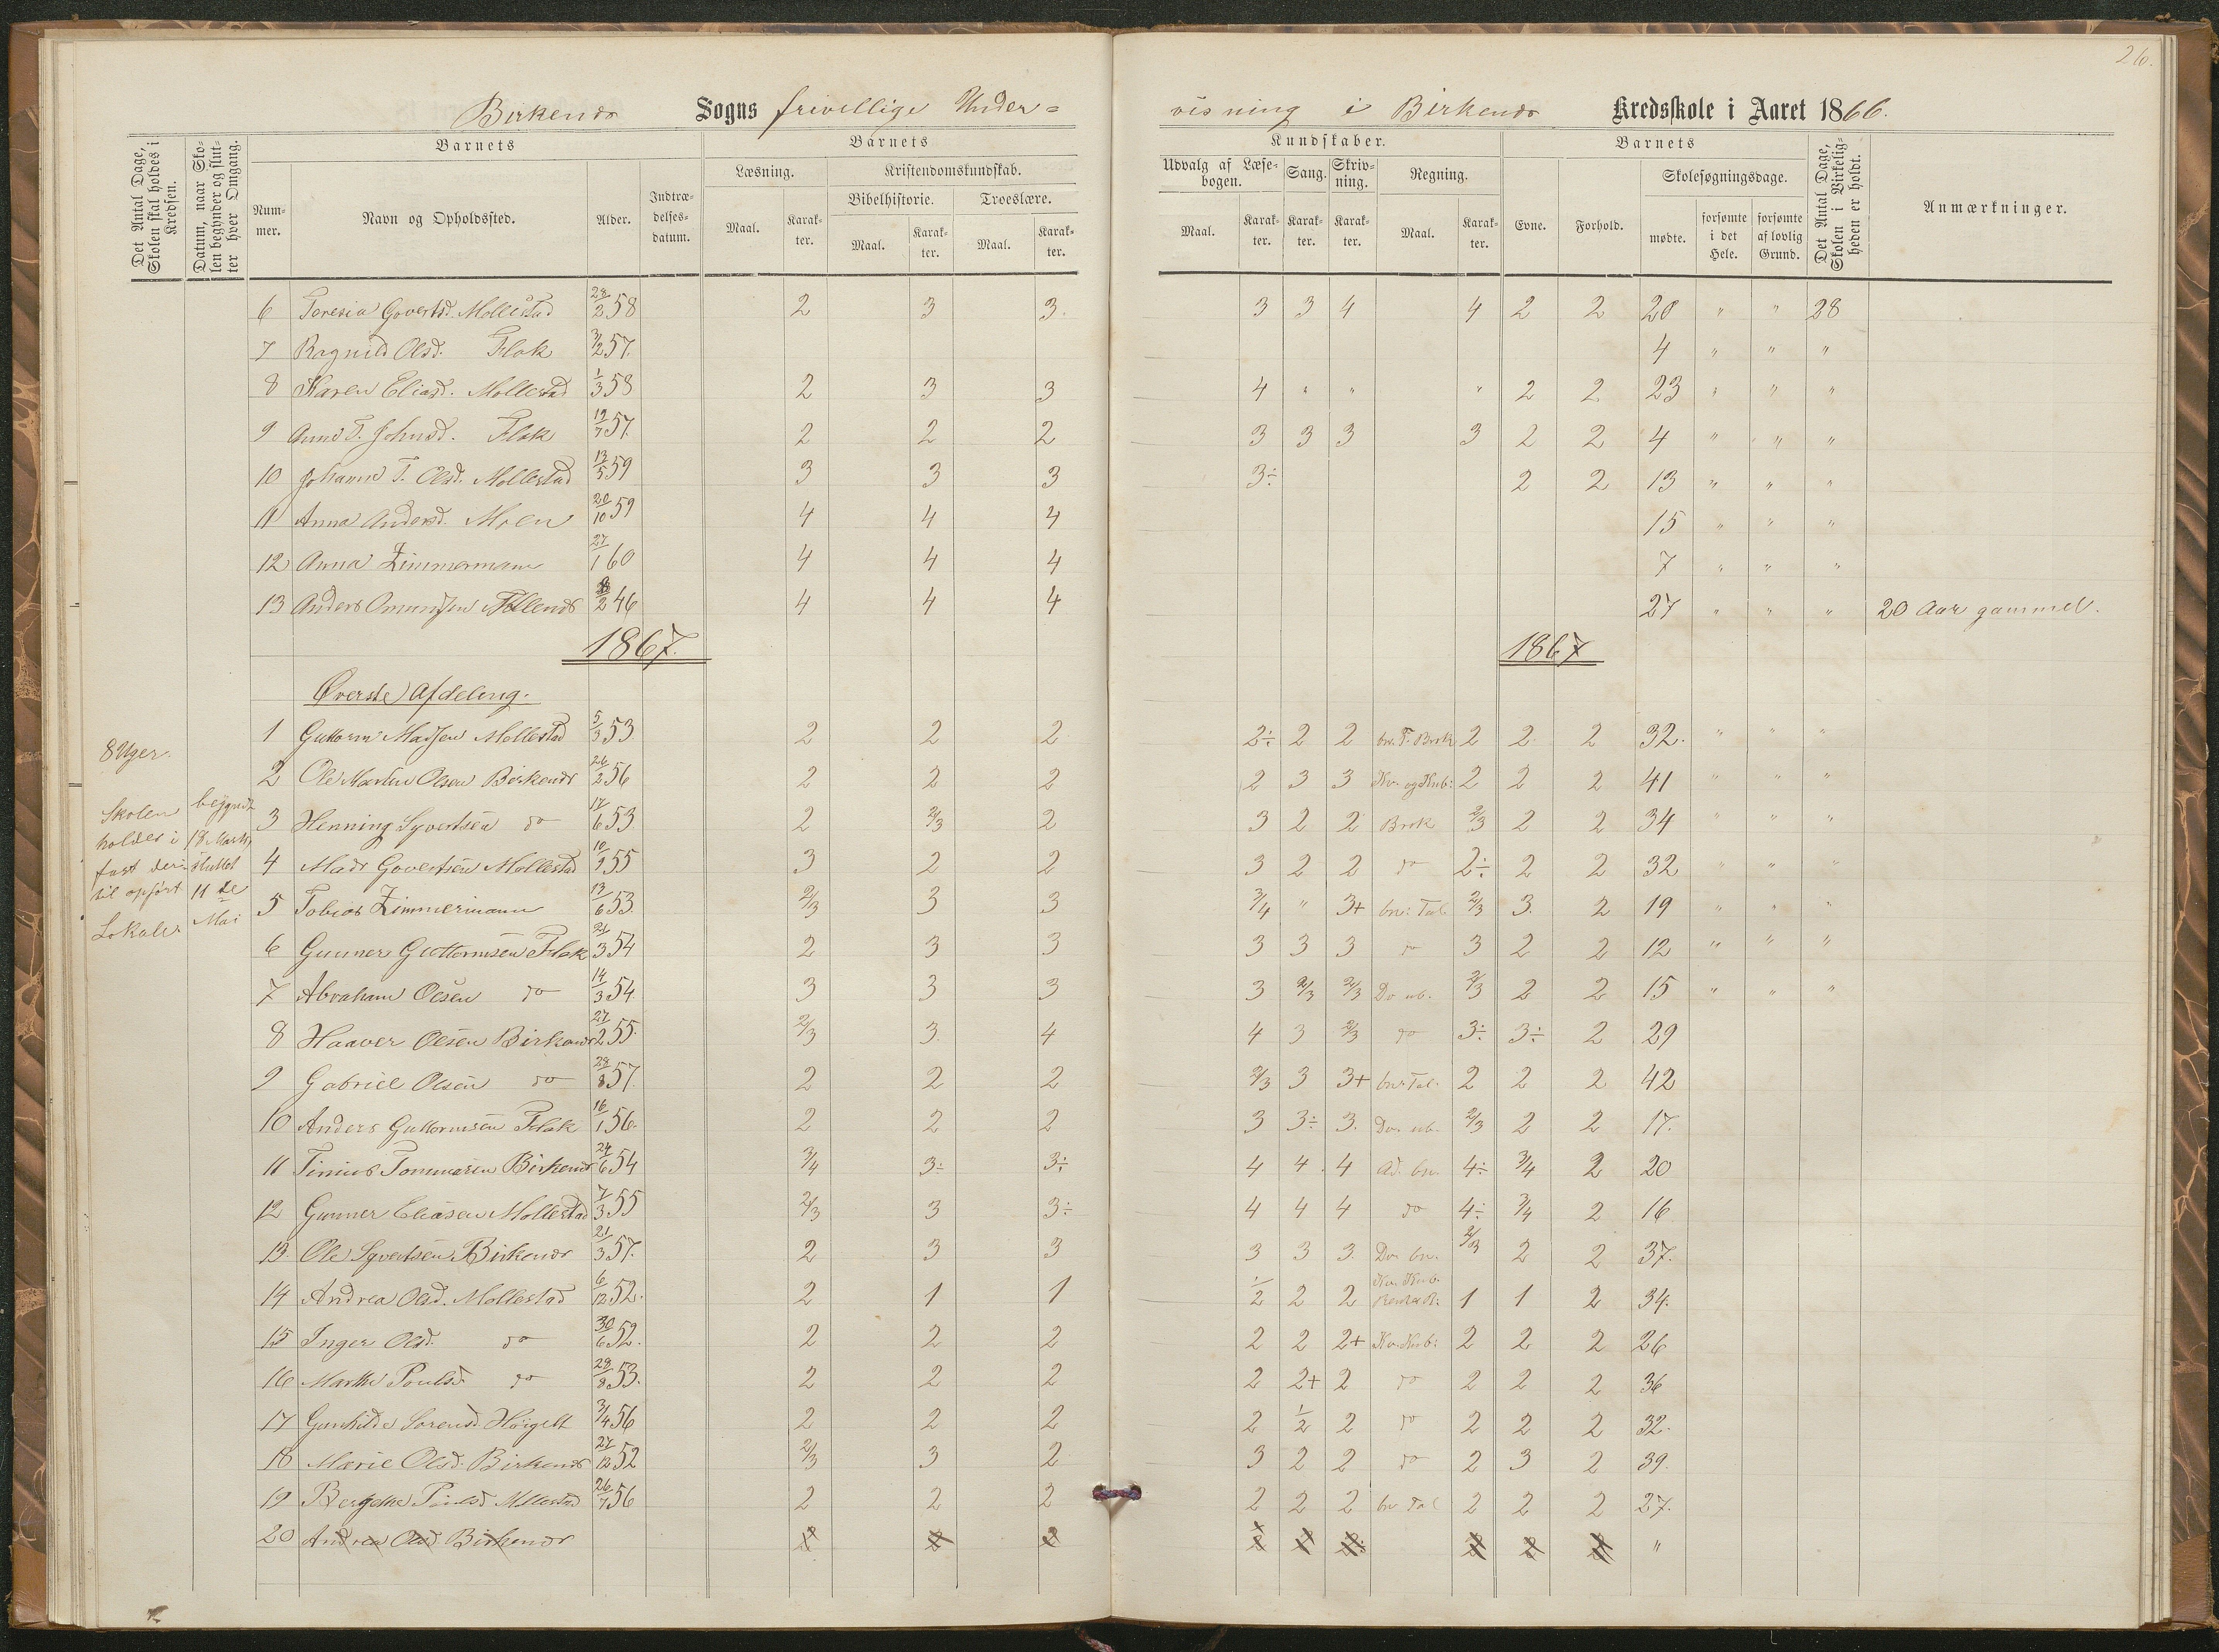 26.
Birkenæs Sogns frivillige Under= visning i Birkenæs Kredsskole i Aaret 1866.
Det Antal Dage, Skolen skal holdes i Kredsen.
Datum, naar Skolen begynder og slutter hver Omgang.
Barnets
Barnets
Kundskaber.
Barnets
Nummer.
Navn og Opholdssted.
Alder.
Indtrædelsesdatum.
Læsning.
Kristendomskundskab.
Bibelhistorie.
Troeslære.
Maal.
Karakter.
Maal.
Karakter.
Maal.
Karakter.
Udvalg af Læsebogen.
Sang.
Skrivning.
Regning.
Maal.
Karakter.
Karakter.
Karakter.
Maal.
Karakter.
Evne.
Forhold.
Skolesøgningsdage.
mødte.
forsømte i det Hele.
forsømte af lovlig Grund.
Det Antal Dage, Skolen i Virkeligheden er holdt.
Anmærkninger.
6 Toresia Govertsd. Mollestad 28/2 58 2 3 3. 3 3 4 4 2 2 28 " " 28
7 Ragnild Olsd. Flak 3/2 57. 4 " " "
8 Karen Eliasd. Mollestad 1/3 58 2 3 3 4 " " " 2 2 23 " " "
9 Anne T. Johnsd. Flak 19/7 57. 2 2 2 3 3 3 3 2 2 4 " " "
10 Johanne T. Olsd. Mollestad 13/5 59 3 3 3 3÷ 2 2 13 " " "
11 Anna Andersd. Moen 20/10 59 4 4 4 15 " " "
12 Anna Zimmermann 27/1 60 4 4 4 7 " " "
13 Anders 2 46 4 4 4 27 " " " 20 Aar gammel.
1867. 1867
Øverste Afdeling.
8 Uger.
Skolen holdes i fast dertil opført Lokale.
begyndt 18 Marts, sluttet 11de Mai
1 Guttorm Madsen Mollestad 5/3 53 2 2 2 2÷ 2 2 br. T. Brok 2 2 2 32. " " "
2 Ole Martin Olsen Birkenæs 24/2 56 2 2 2 2 3 3 Kv. og Kub: 2 2 2 41 " " "
3 Henning Syvertsen do 17/6 53 2 2/3 2 3 2 2 Brok 2/3 2 2 34 " " "
4 Mads Govertsen Mollestad 10/9 55 3 2 2 3 2 2 do 2÷ 2 2 32 " " "
5 Tobias Zimmermann 13/6 53. 2/3 3 3 3/4 " 3+ bn: Tal 2/3 3. 2 19 " " "
6 Gunner Guttormsen Flak 21/3 54 2 3 3 3 3 3 do 3 2 2 12 " " "
7 Abraham Olsen do 14/3 54 3 3 3 3 2/3 2/3 Do ub. 2/3 2 2 15 " " "
8 Haaver Olsen Birkenæs 27/2 55. 2/3 3. 4 4 3 2/3 do 3÷ 3÷ 2 29
9 Gabriel Olsen do 28/8 57. 2 2 2 2/3 3 3+ bn: Tal. 2 2 2 42
10 Anders Guttormsen Flak 16/1 56. 2 2 2 3 3÷ 3. Do. ub. 2/3 2 2 17.
11 Tinius Tommesen Birkenæs 24/6 54 3/4 3÷ 3÷ 4 4. 4 Ad. bn. 4÷ 3/4 2 20
12 Gunner Eliasen Mollestad 7/3 55 2/3 3 3÷ 4 4 4 do 4÷ 3/4 2 16
13. Ole Syvertsen Birkenæs 21/3 57. 2 3 3 3 3 3. Do. bn. 2/3 2 2 37.
14 Andrea Olsd. Mollestad 6/12 52. 2 1 1 1/2 2 2 Kv. Kub. 1 1 2 34.
15 Inger Olsd. do 30/6 52. 2 2 2 2 2 2+ Kv. Kub: 2 2 2 26
16 Marthe Poulsd. do 28/8 53. 2 2 2 2 2+ 2 do 2 2 2 36
17 Gunhilde Sorensd. Høigelt 3/4 56 2 2 2 2 1/2 2 do 2 2 2 32.
18 Marie Olsd. Birkenæs 27/12 52 2/3 3 2 3 2 2 do 2 3 2 39.
19 Bergethe Poulsd. Mollestad 26/7 56 2 2 2 2 2 2 bn Tal 2 2 2 27.
20 Andrea Olsd. Birkenæs "